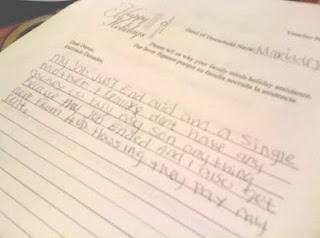 Happy
Holidays
Head of Household Name: Mariah
Please tell us why your family needs holiday assistance.
Por favor díganos porque su familia necesita la asistencia.
Dear Donor,
Estimado Donador,
my job just End and am a single
mother I really dont have any
money to buy my son anything
because my job Ended and I also get
rent from Hud Housing they pay my
rent.